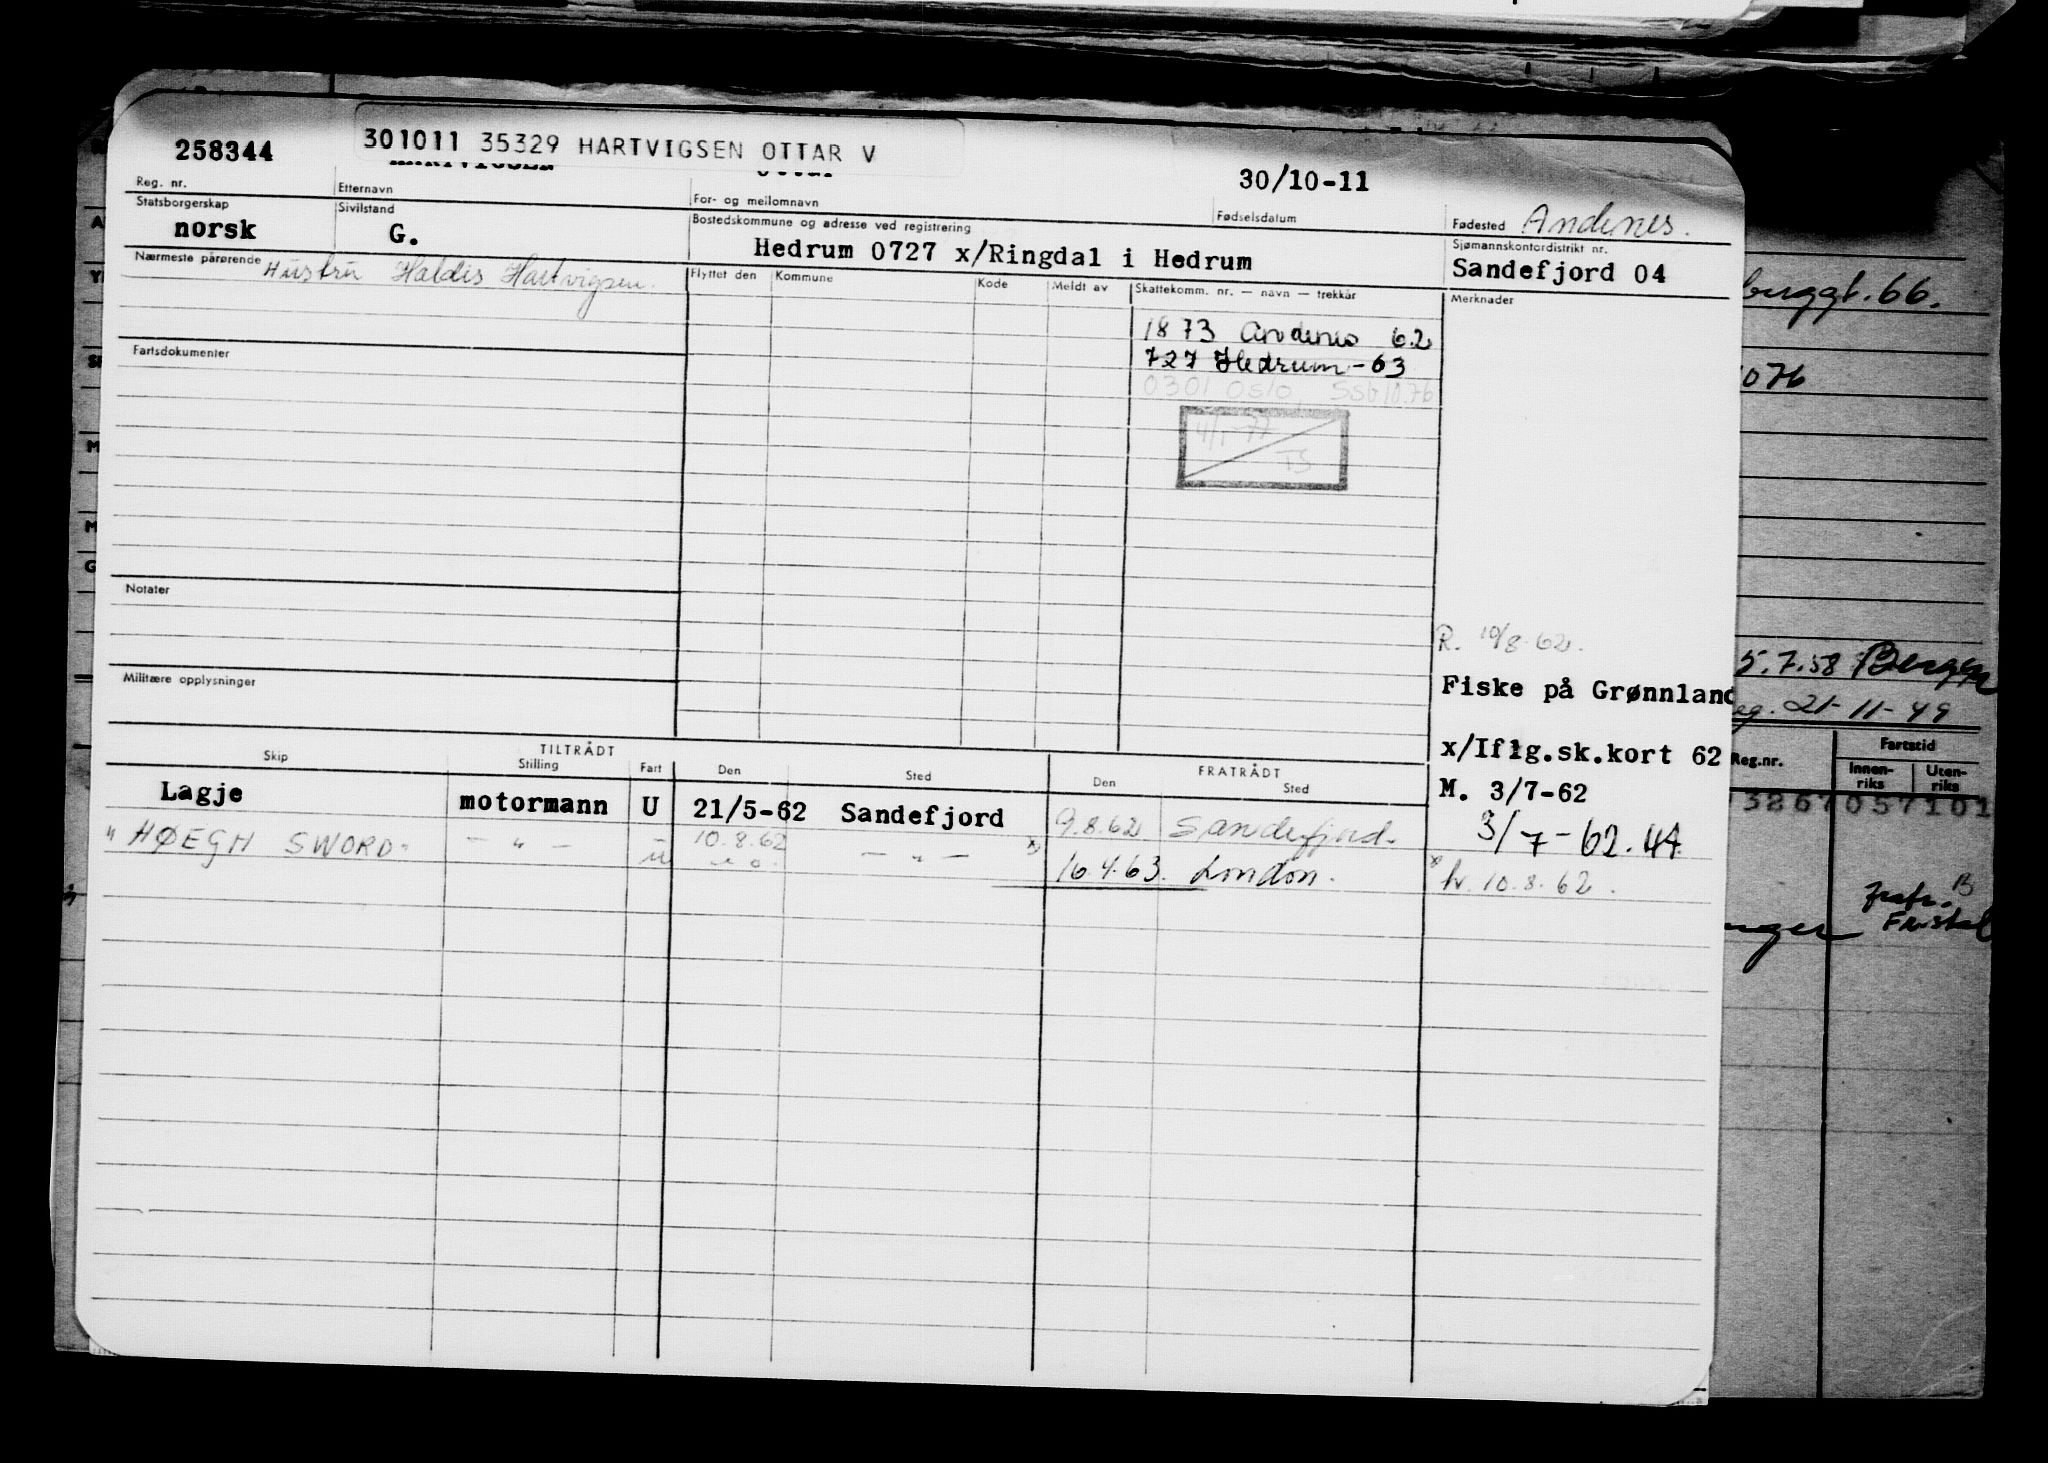 258344
301011 35329 HARTVIGSEN OTTAR V
30/10-11
Reg. nr.
Etternavn
For- og mellomnavn
Fødselsdatum
Fødested Andenes.
Statsborgerskap
Sivilstand
Bostedskommune og adresse ved registrering
Sjømannskontordistrikt nr.
norsk
G.
Hedrum 0727 x/Ringdal i Hedrum
Sandefjord 04
Nærmeste pårørende Hustru Haldis Hartvigsen.
Flyttet den
Kommune
Kode
Meldt av
Skattekomm. nr. — navn — trekkår
Merknader
1873 Andenes 62
727 Hedrum - 63
0301 Oslo, SSb 10.76
4/1-77
TS
Fartsdokumenter
Notater
Militære opplysninger
R. 10/8-62.
Fiske på Grønnland
x/Iflg.sk.kort 62
M. 3/7-62
3/7-62.
x hr. 10.8.62.
TILTRÅDT
FRATRÅDT
Skip
Stilling
Fart
Den
Sted
Den
Sted
Lagje motormann U 21/5-62 Sandefjord 9.8.62 Sandefjord.
"HØEGH SWORD" — " — u 10.8.62 — " — x) 16.4.63. London.
buggt. 66.
1076
5.7.58 Bergen
eg. 21-11-49
Reg.nr.
Fartstid
Innen-
riks
Uten-
riks
3267057101
fratr. B